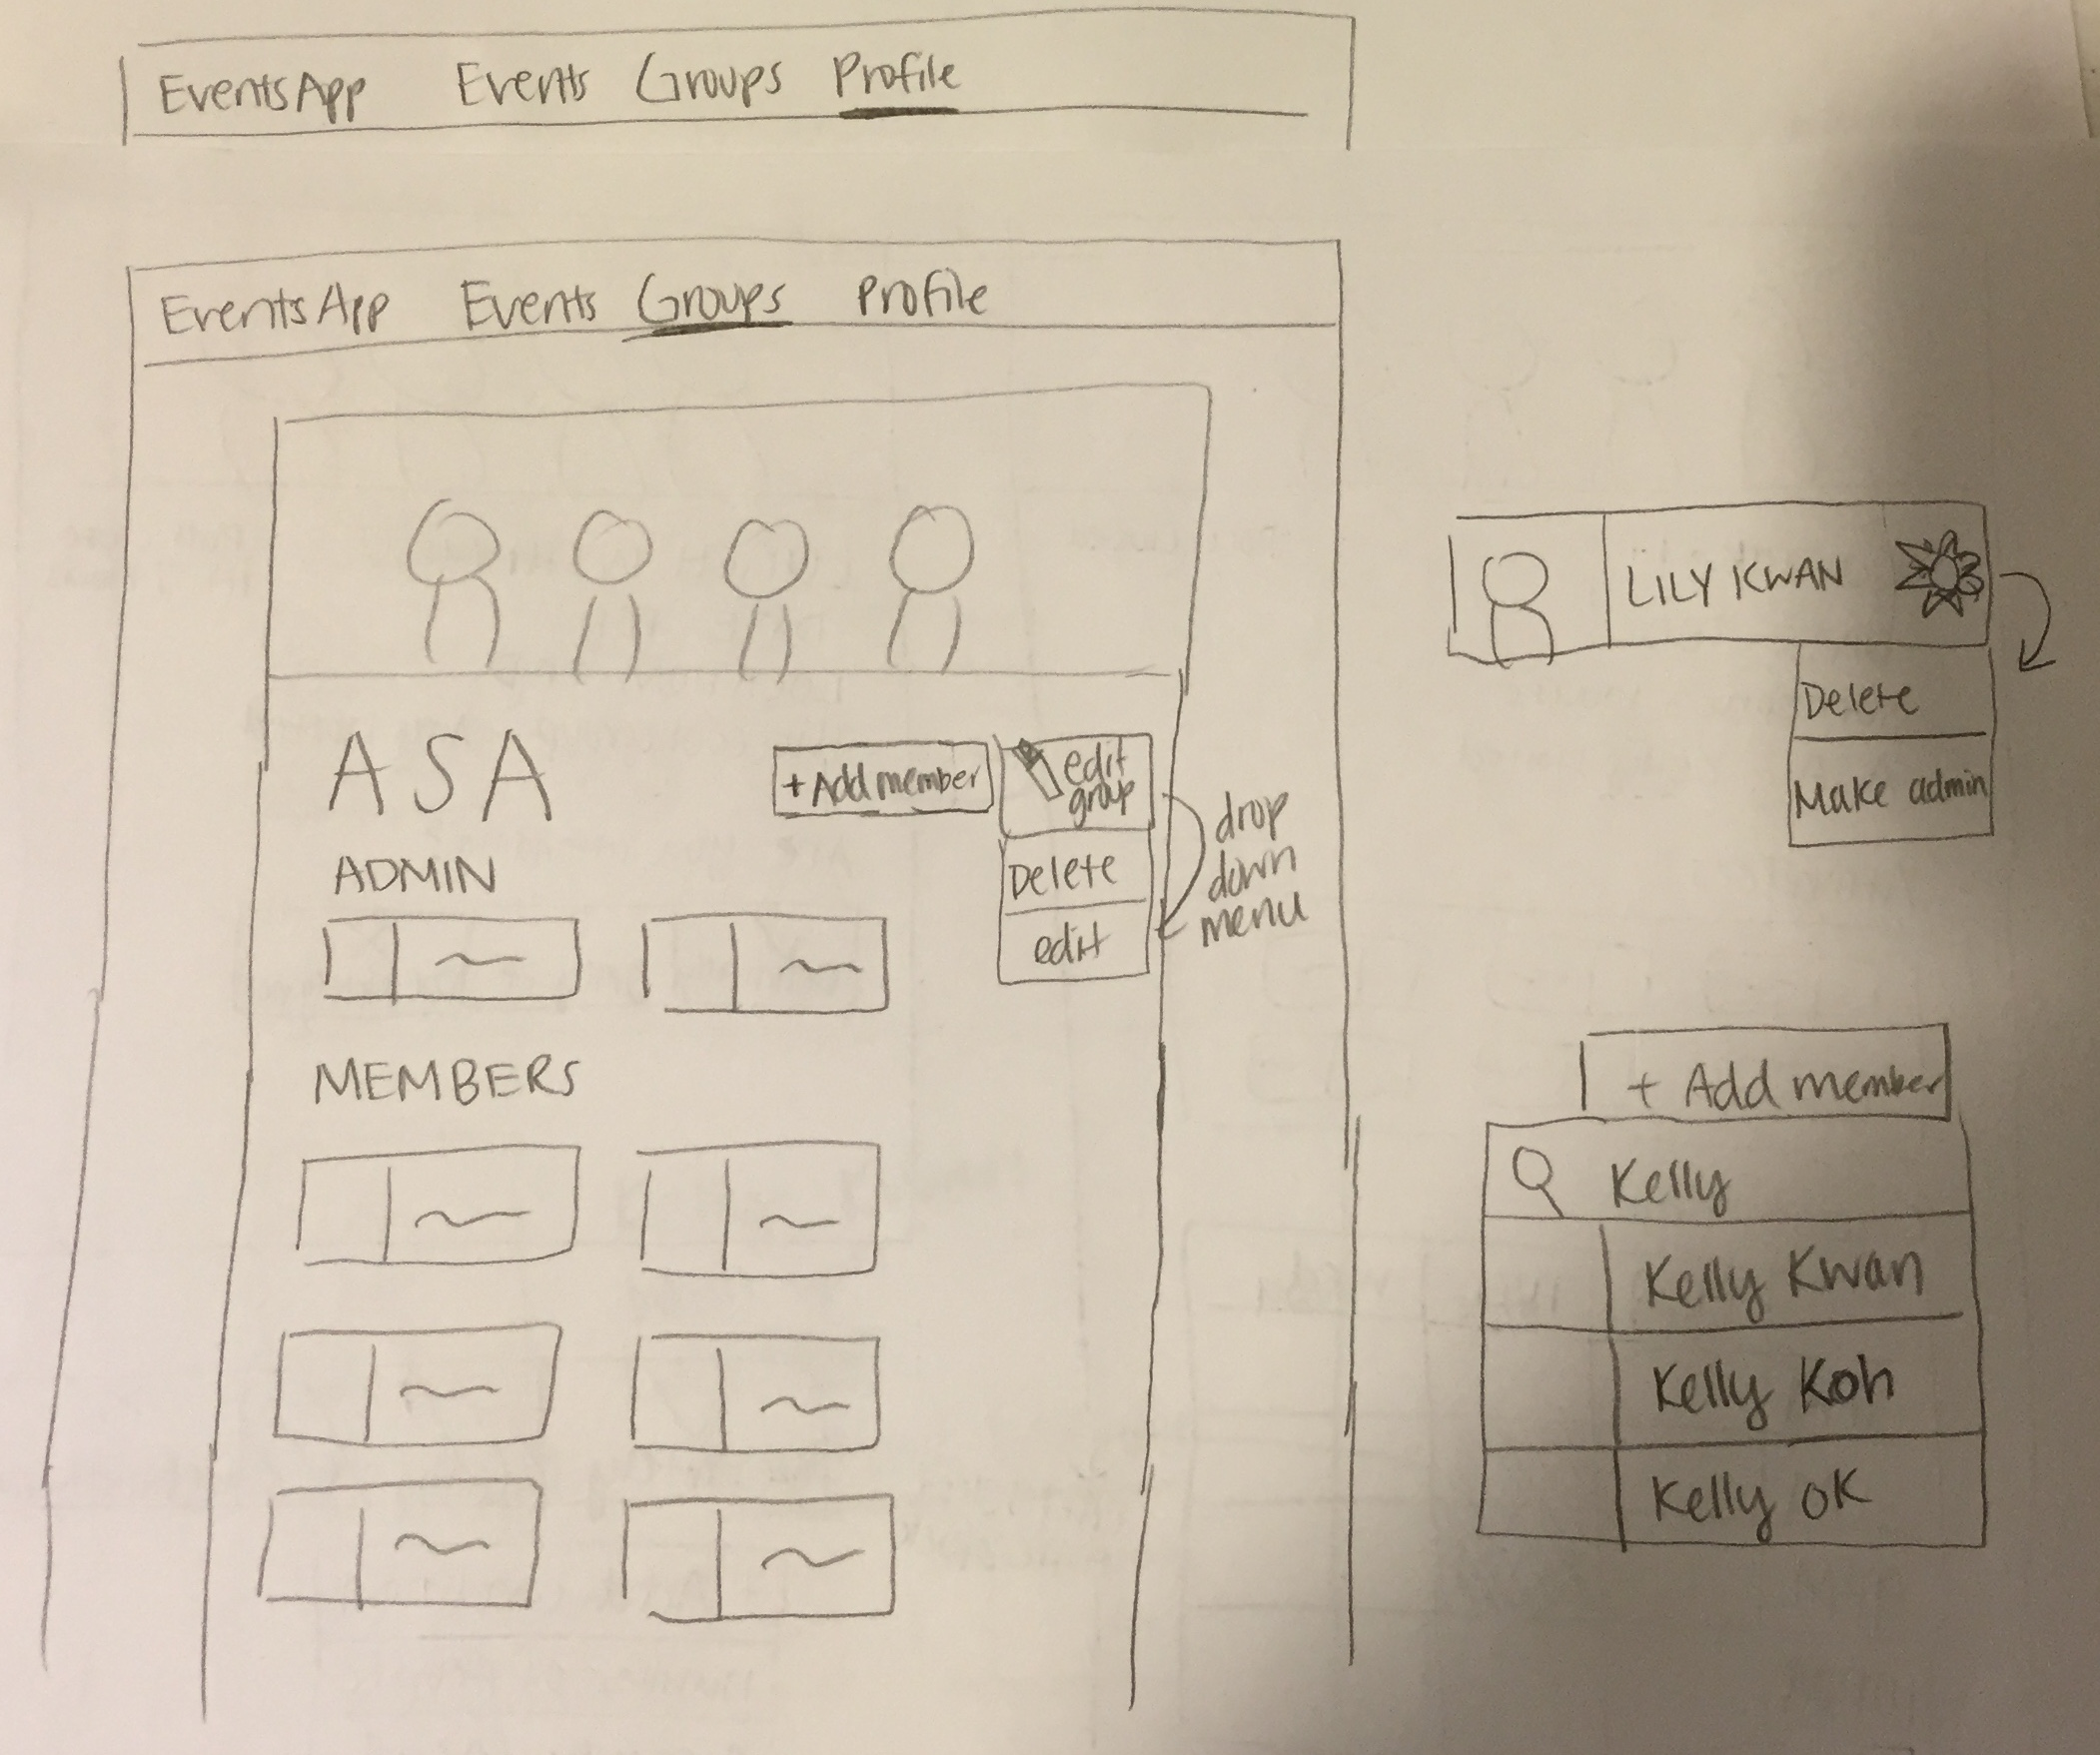 EventsApp Events Groups Profile
EventsApp Events Groups Profile
ASA
+ Add member
edit
group
Delete
edit
drop
down
menu
ADMIN
MEMBERS
LILY KWAN
Delete
Make admin
+ Add member
Kelly
Kelly Kwan
Kelly Koh
Kelly OK